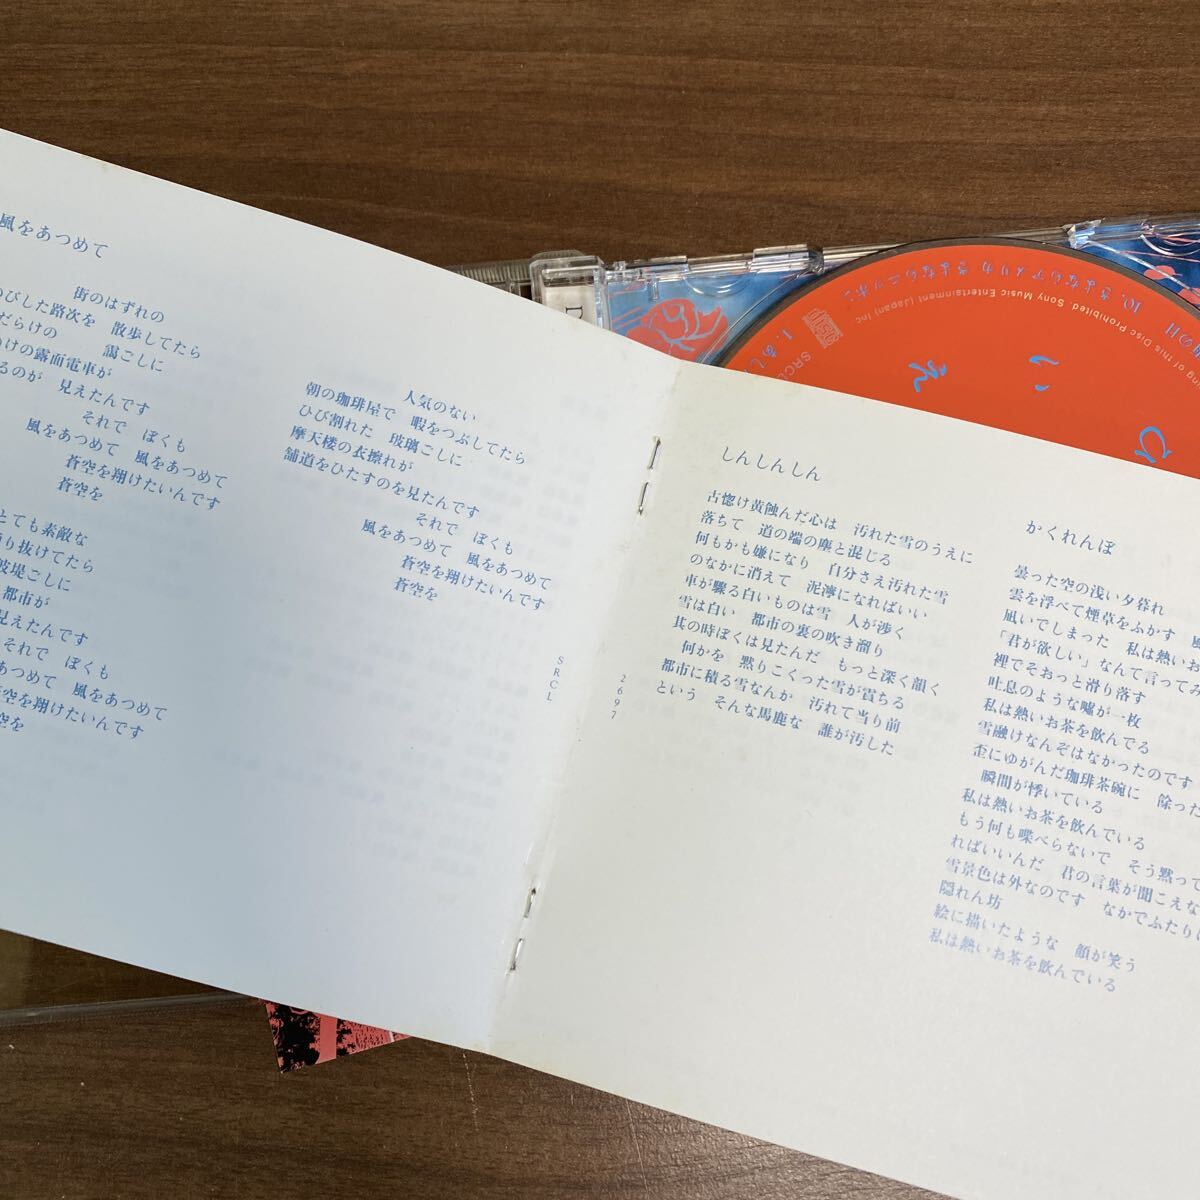 風をあつめて
街のはずれの
びした路次を　散歩してたら
だらけの　靄ごしに
けの露面電車が
るのが　見えたんです
それで　ぼくも
風をあつめて　風をあつめて
蒼空を翔けたいんです
蒼空を
とても素敵な
り抜けてたら
波堤ごしに
都市が
見えたんです
それで　ぼくも
あつめて　風をあつめて
空を翔けたいんです
空を
人気のない
朝の珈琲屋で　暇をつぶしてたら
ひび割れた　玻璃ごしに
摩天楼の衣擦れが
舗道をひたすのを見たんです
それで　ぼくも
風をあつめて　風をあつめて
蒼空を翔けたいんです
蒼空を
SRCL
2697
しんしんしん
古惚け黄蝕んだ心は　汚れた雪のうえに
落ちて　道の端の塵と混じる
何もかも嫌になり　自分さえ汚れた雪
のなかに消えて　泥濘になればいい
車が驟る白いものは雪　人が渉く
雪は白い　都市の裏の吹き溜り
其の時ぼくは見たんだ　もっと深く韻く
何かを　黙りこくった雪が霣ちる
都市に積る雪なんか　汚れて当り前
という　そんな馬鹿な　誰が汚した
かくれんぼ
曇った空の浅い夕暮れ
雲を浮べて煙草をふかす　風
凪いでしまった　私は熱いお
「君が欲しい」なんて言ってみ
裡でそおっと滑り落す
吐息のような嘘が一枚
私は熱いお茶を飲んでる
雪融けなんぞはなかったのです
歪にゆがんだ珈琲茶碗に　餘った
瞬間が悸いている
私は熱いお茶を飲んでいる
もう何も喋べらないで　そう黙って
ればいいんだ　君の言葉が聞こえな
雪景色は外なのです　なかでふたりは
隠れん坊
絵に描いたような　顔が笑う
私は熱いお茶を飲んでいる
10. さよならアメリカ さよならニッポン
ing of this Disc Prohibited. Sony Music Entertainment (Japan) Inc.
SRC